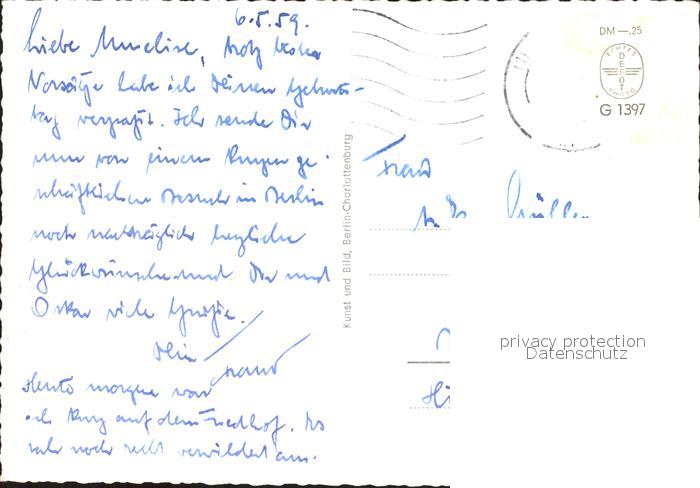 6.5.59.
Liebe Annelise, trotz bester
Vorsätze habe ich Deinen Geburts-
tag vergeßt. Ich sende Dir
nun von einem kurzen ge-
schäftlichen Besuch in Berlin
noch nachträglich herzliche
Glückwünsche und Dir und
Oskar viele Grüße.
Dein
Heute morgen war
ich kurz auf dem Friedhof. Es
sah noch recht verwildert aus.
Kunst und Bild, Berlin-Charlottenburg
DM —.25
ECHTES
DEFOT
PHOTO
G 1397
Frau
privacy protection
Datenschutz